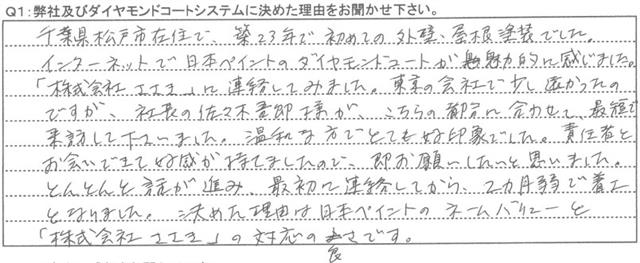 Q1:弊社及びダイヤモンドコートシステムに決めた理由をお聞かせ下さい。
千葉県松戸市在住で、築23年で初めての外壁、屋根塗装でした。
インターネットで日本ペイントのダイヤモンドコートが魅力的に感じました。
「株式会社エエヨ」に連絡してみました。東京の会社で少し遠かったの
ですが、社長の佐々木吾郎様が、こちらの都合に合わせて、最短で
来訪して下さいました。温和な方でとても好印象でした。責任者と
お会いできて好感が持てましたので、即お願いしたいと思いました。
とんとんと話が進み、最初に連絡してから、2カ月弱で着工
となりました。決めた理由は日本ペイントのネームバリューと
「株式会社エエヨ」の対応の良さです。